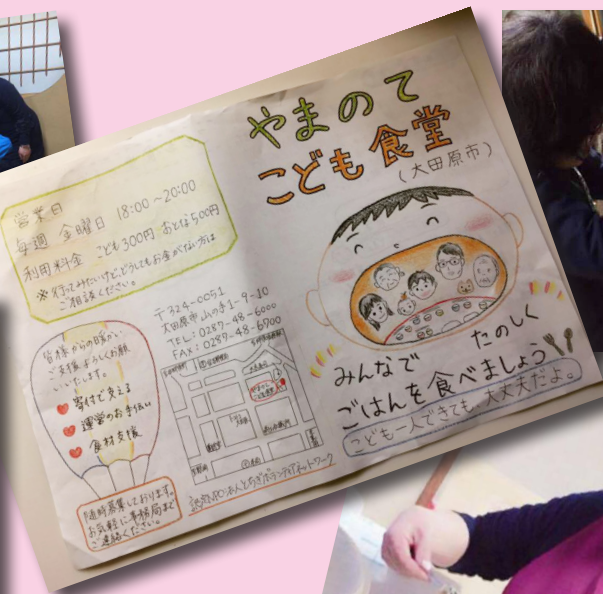 やまのて
こども食堂
(大田原市)
営業日
毎週 金曜日 18:00~20:00
利用料金 こども300円 おとな500円
※行ってみたいけど、どうしてもお金がない方は
ご相談ください。
〒324-0051
大田原市山の手1-9-10
TEL: 0287-48-6000
FAX: 0287-48-6700
皆様からの暖かい
ご支援よろしくお願
いいたします。
寄付で支える
運営のお手伝い
食材支援
随時募集しております。
お気軽に事務局まで
ご連絡ください。
みんなで たのしく
ごはんを食べましょう
こども一人できても、大丈夫だよ。